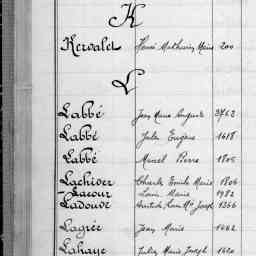 K
Kervalet Henri Mathurin Marie 200
L
Labbé Jean Marie Auguste 3762
Labbé Jules Eugène 1418
Labbé Marcel Pierre 1805
Lachiver Charles Emile Marie 1806
Lacour Louis Marie 1982
Ladouve Aristide Marie Joseph 1366
Lagrée Jean Marie 1442
Lahaye Jules Marie Joseph 1420